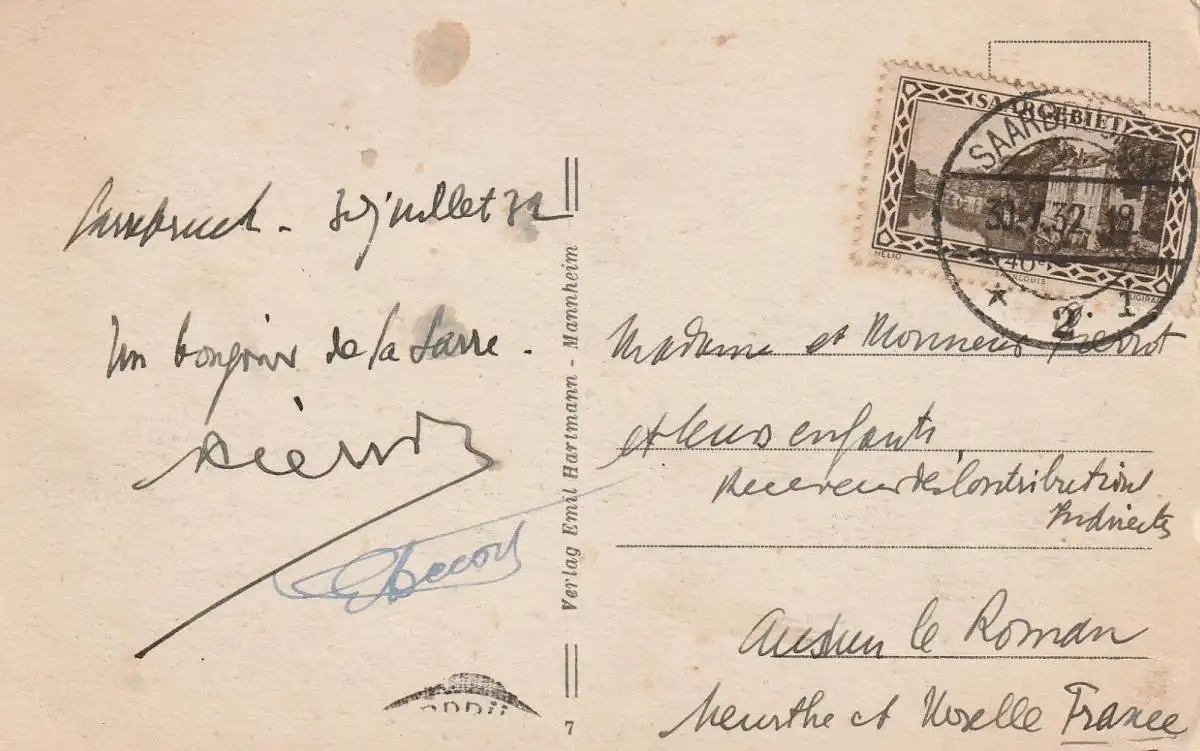 Sarrebruck - 30 juillet 32
Un bonjour de la Sarre.
Verlag Emil Hartmann - Mannheim
7
SAARGEBIET
HELIO
SAARLOUIS
SAARBRÜCKEN
30.7.32. 19
* 2 1
Madame et Monsieur Pierrot
et leurs enfants
Receveur des Contributions
Indirectes
Audun le Roman
Meurthe et Moselle France